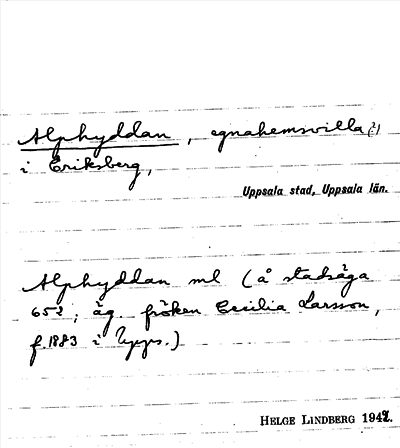 Alphyddan, egnahemsvilla(?)
i Eriksberg,
Uppsala stad, Uppsala län.
Alphyddan ml (å stadsäga
652; äg. fröken Cecilia Larsson,
f. 1883 i Upps.)
HELGE LINDBERG 1942.